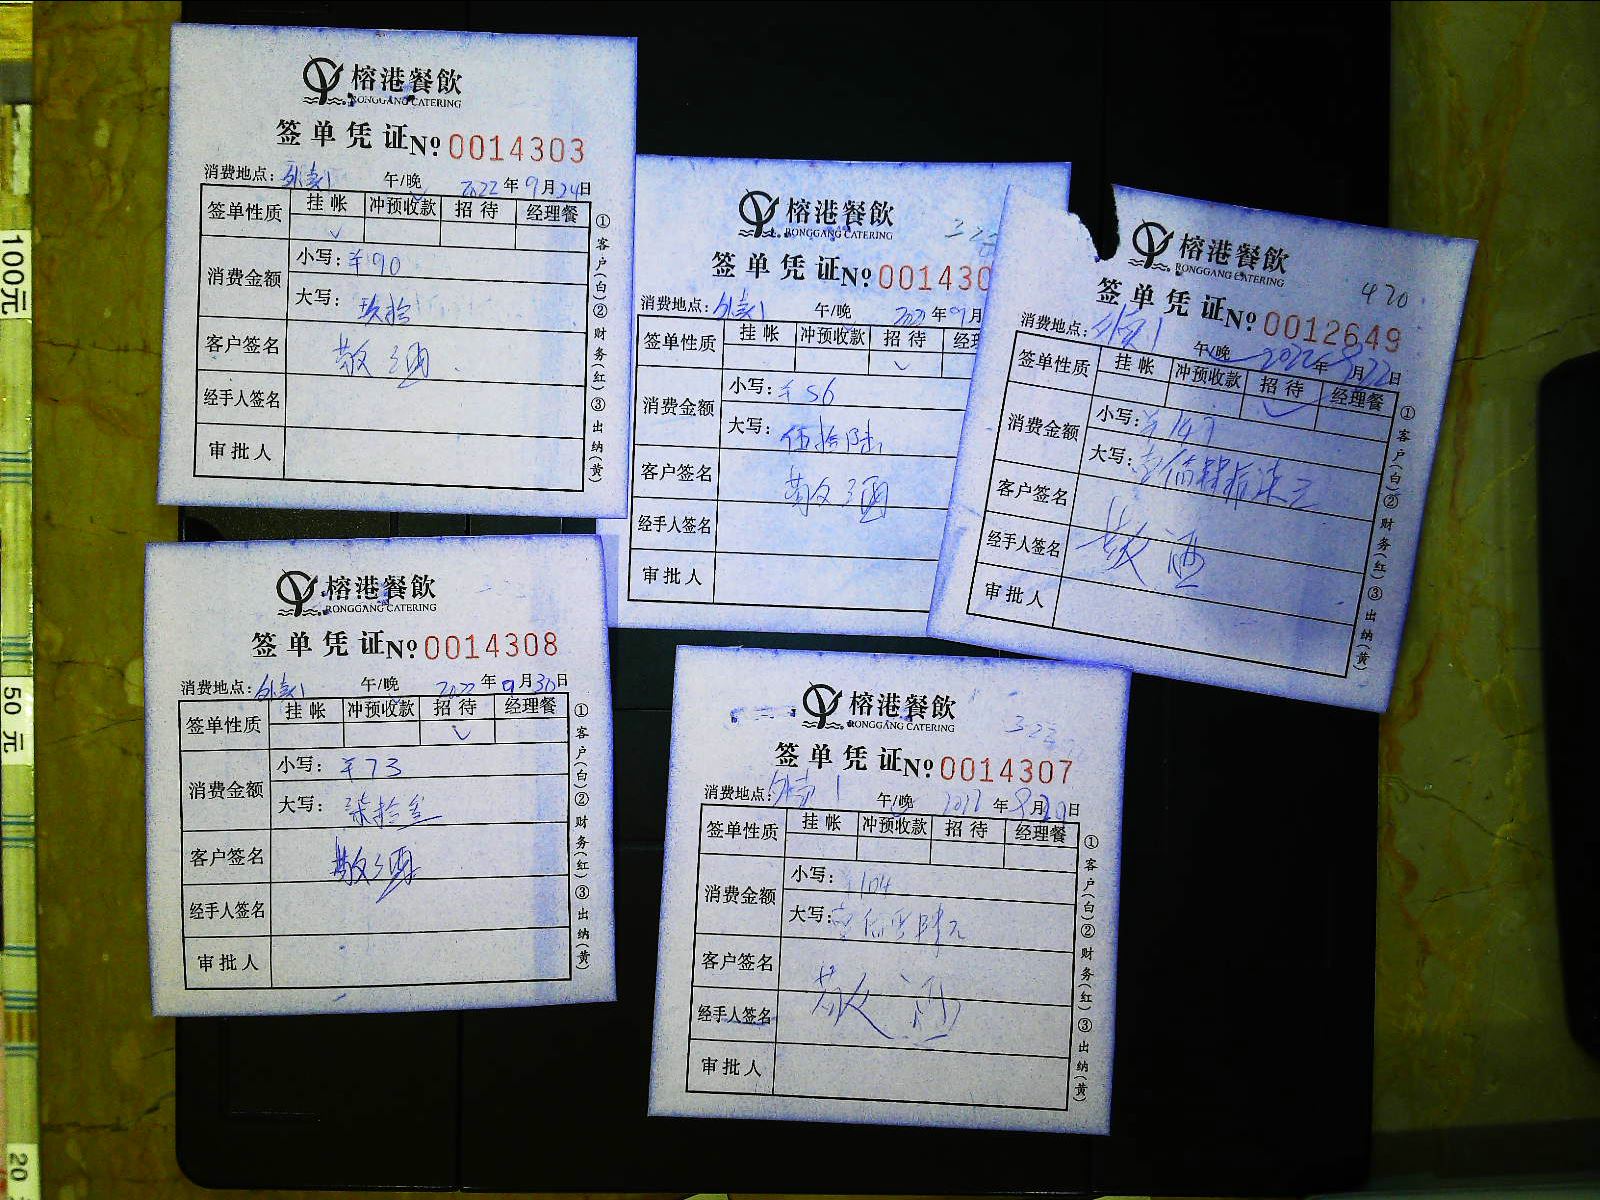 100元
50元
20
榕港餐飲
RONGGANG CATERING
签单凭证 No 0014303
消费地点： 午/晚 2022年9月24日
签单性质 挂帐 冲预收款 招待 经理餐
消费金额 小写：¥90
大写：玖拾
客户签名
经手人签名
审批人
①客户(白)②财务(红)③出纳(黄)
榕港餐飲
RONGGANG CATERING
签单凭证 No 001430
消费地点： 午/晚 年9月
签单性质 挂帐 冲预收款 招待 经理
消费金额 小写：¥56
大写：伍拾陆
客户签名
经手人签名
审批人
榕港餐飲
RONGGANG CATERING
420
签单凭证 No 0012649
消费地点： 午/晚 2022年9月22日
签单性质 挂帐 冲预收款 招待 经理餐
消费金额 小写：¥147
大写：壹佰肆拾柒元
客户签名
经手人签名
审批人
①客户(白)②财务(红)③出纳(黄)
榕港餐飲
RONGGANG CATERING
签单凭证 No 0014308
消费地点： 午/晚 2022年9月30日
签单性质 挂帐 冲预收款 招待 经理餐
消费金额 小写：¥73
大写：柒拾叁
客户签名
经手人签名
审批人
①客户(白)②财务(红)③出纳(黄)
榕港餐飲
RONGGANG CATERING
签单凭证 No 0014307
消费地点： 午/晚 2022年9月 日
签单性质 挂帐 冲预收款 招待 经理餐
消费金额 小写：¥104
大写：
客户签名
经手人签名
审批人
①客户(白)②财务(红)③出纳(黄)